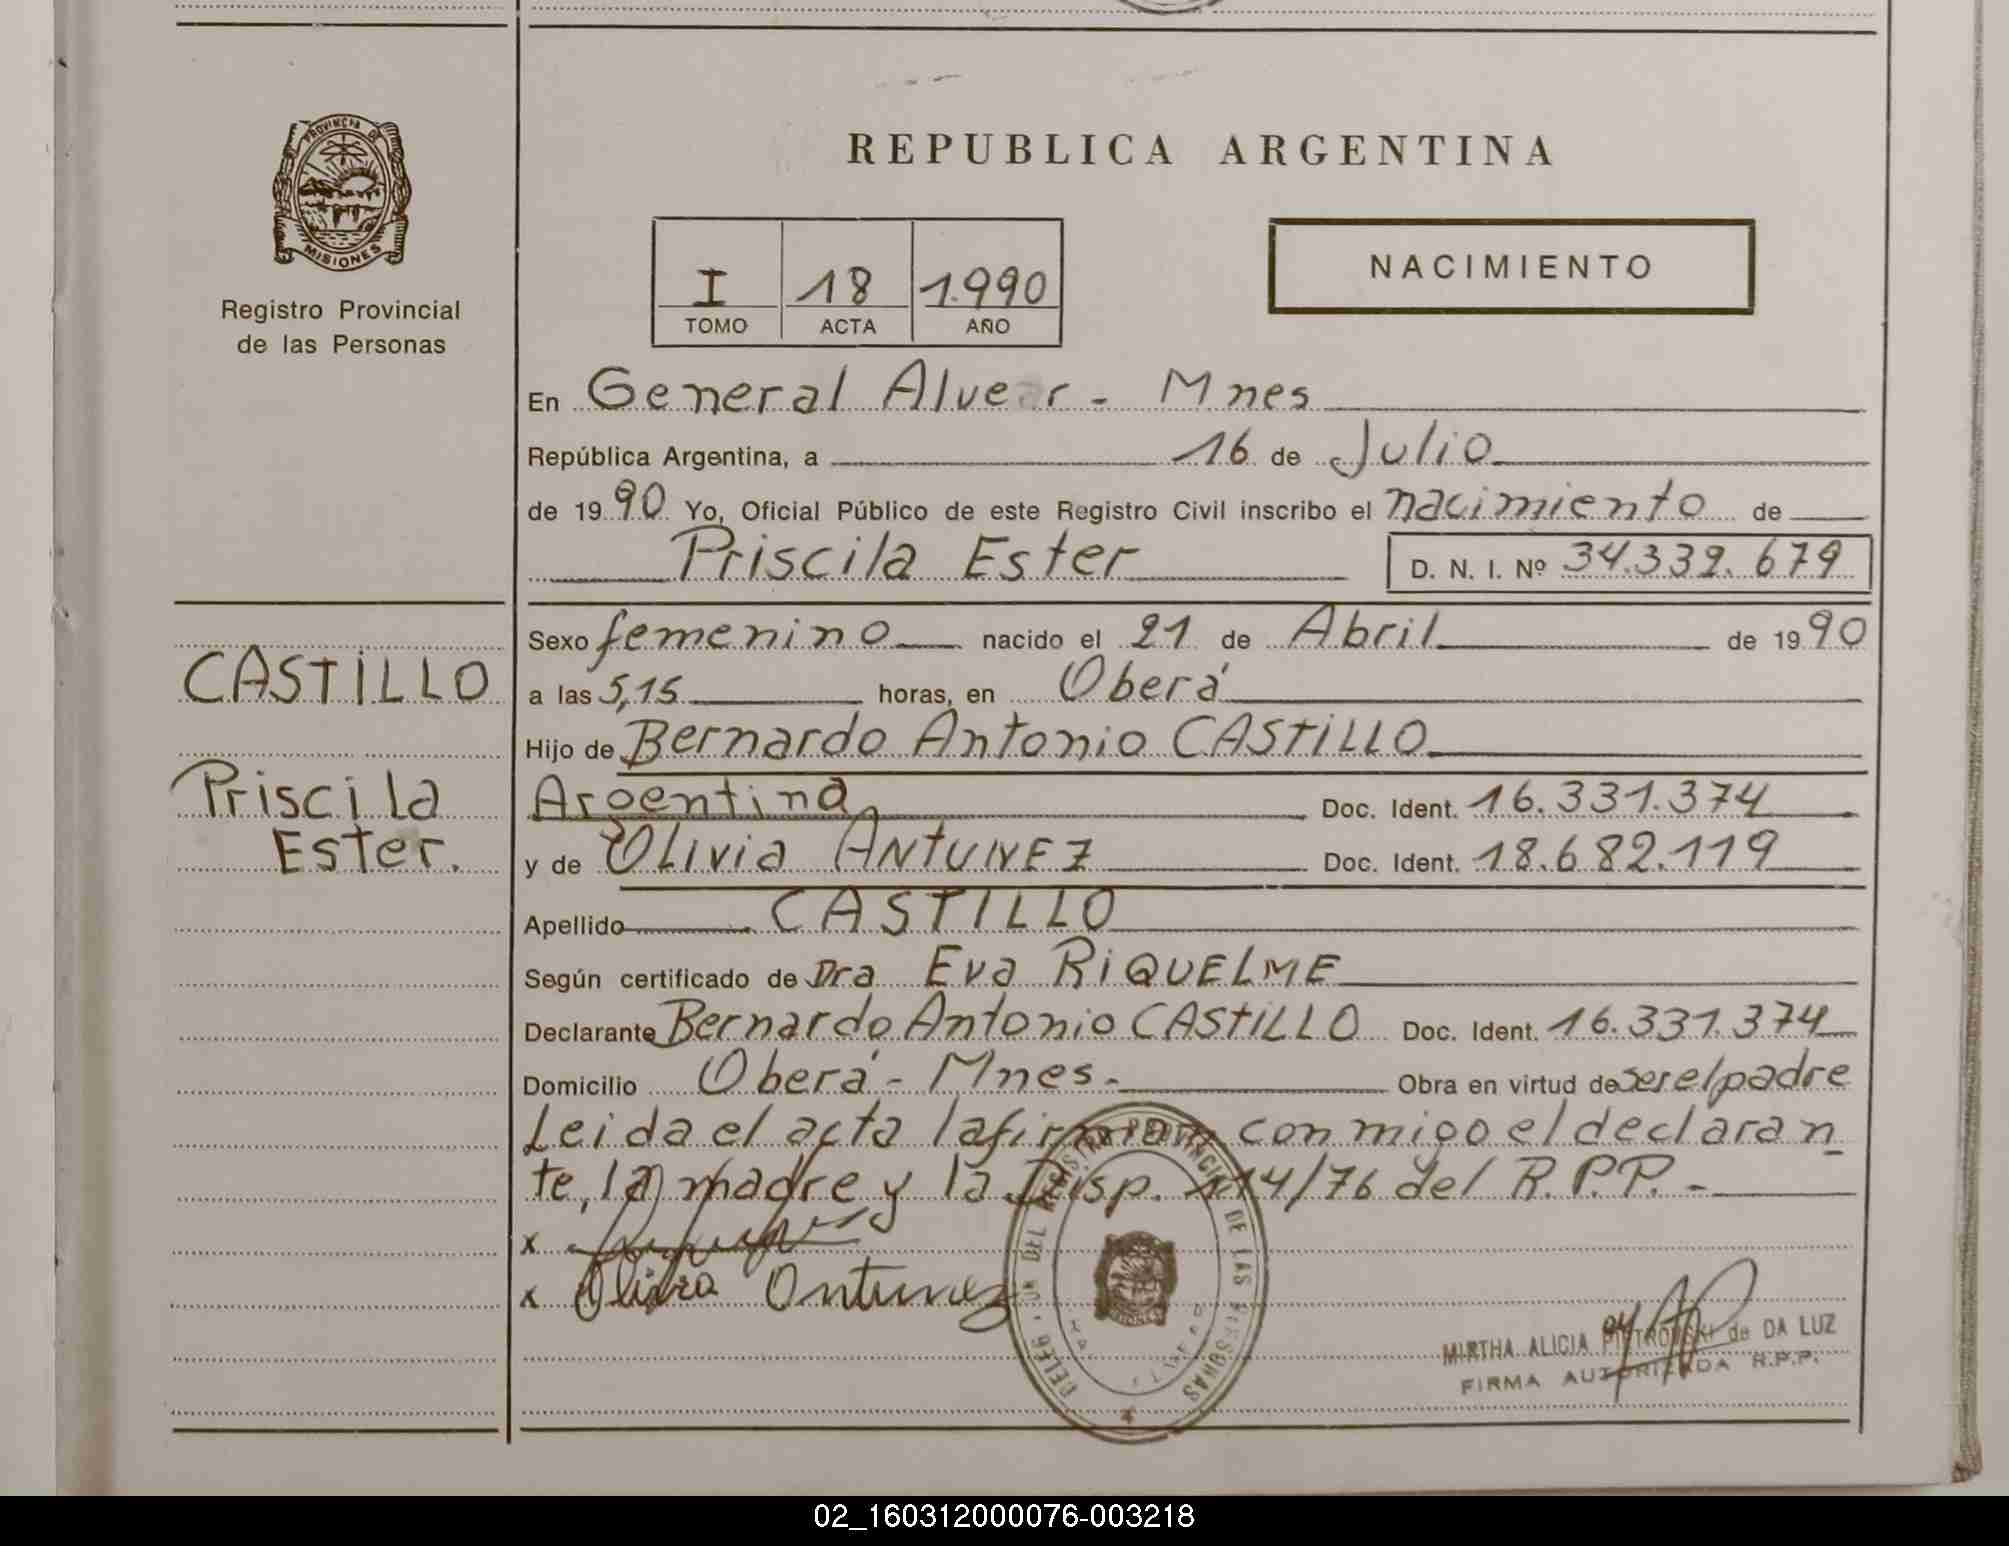 PROVINCIA DE
MISIONES
Registro Provincial
de las Personas
REPUBLICA ARGENTINA
I 18 1.990
TOMO ACTA AÑO
NACIMIENTO
En General Alvear - Mnes
República Argentina, a 16 de Julio
de 1990 Yo, Oficial Público de este Registro Civil inscribo el nacimiento de
Priscila Ester D. N. I. Nº 34.339.679
CASTILLO
Priscila
Ester.
Sexo femenino nacido el 21 de Abril de 1990
a las 5,15 horas, en Oberá
Hijo de Bernardo Antonio CASTILLO
Argentina Doc. Ident. 16.331.374
y de Olivia ANTUNEZ Doc. Ident. 18.682.119
Apellido CASTILLO
Según certificado de Dra Eva RIQUELME
Declarante Bernardo Antonio CASTILLO Doc. Ident. 16.331.374
Domicilio Oberá - Mnes. Obra en virtud de ser el padre
Leida el acta la firman conmigo el declaran
te, la madre y la Disp. 114/76 del R.P.P. -
x
x Olivia Antunez
DEL REGISTRO PROVINCIAL DE LAS PERSONAS
MISIONES
MIRTHA ALICIA PIETROWSKI de DA LUZ
FIRMA AUTORIZADA R.P.P.
02_160312000076-003218